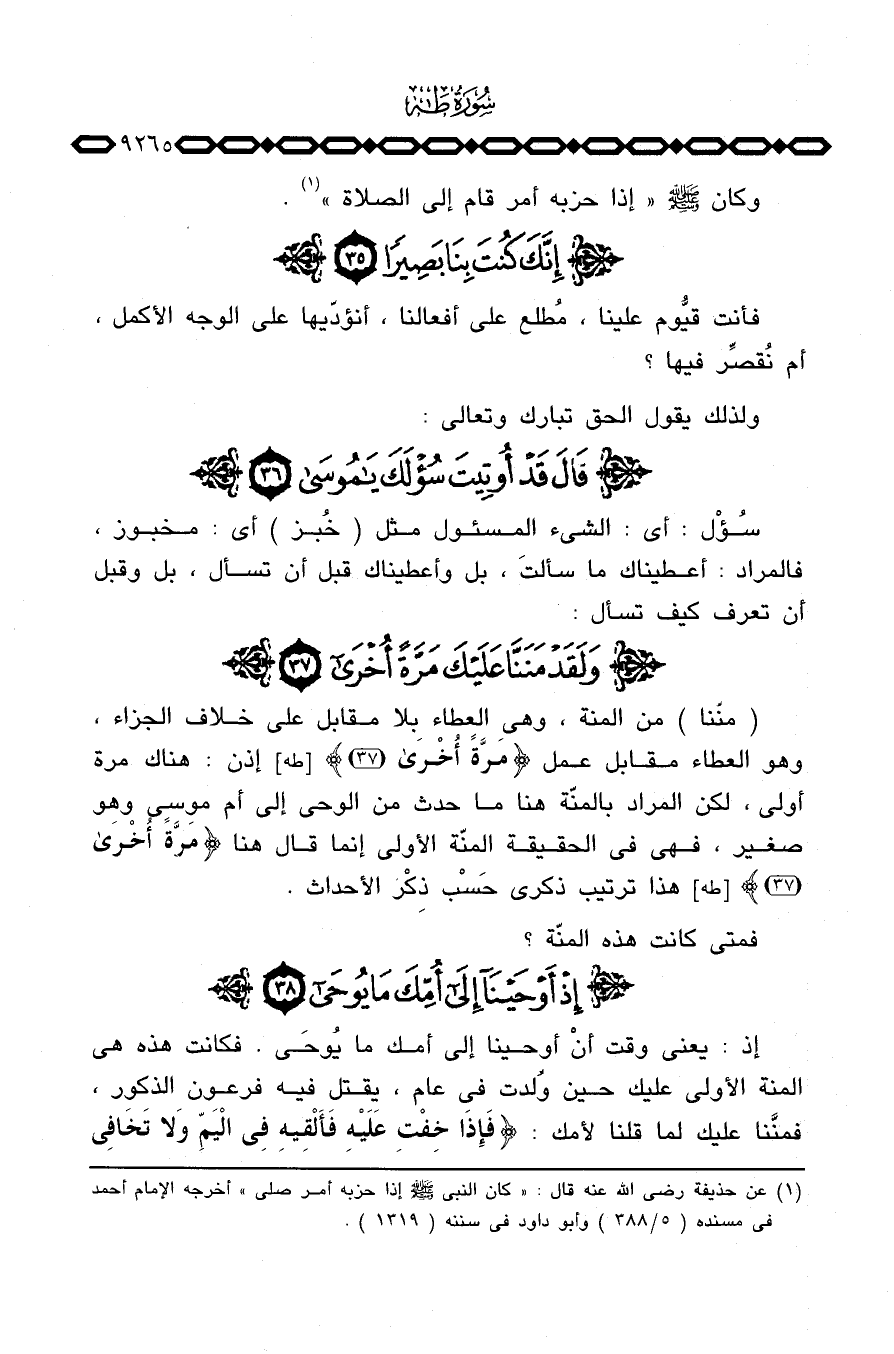 سُورَةُ طٰهٰ
٩٢٦٥
وكان ﷺ « إذا حزبه أمر قام إلى الصلاة »(١) .
إِنَّكَ كُنتَ بِنَا بَصِيرًا ٣٥
فأنت قيُّوم علينا ، مُطلع على أفعالنا ، أنؤدّيها على الوجه الأكمل ،
أم نُقصِّر فيها ؟
ولذلك يقول الحق تبارك وتعالى :
قَالَ قَدْ أُوتِيتَ سُؤْلَكَ يَٰمُوسَىٰ ٣٦
سُـؤْل : أى : الشىء المسئول مثل ( خُبز ) أى : مخبوز ،
فالمراد : أعطيناك ما سألتَ ، بل وأعطيناك قبل أن تسأل ، بل وقبل
أن تعرف كيف تسأل :
وَلَقَدْ مَنَنَّا عَلَيْكَ مَرَّةً أُخْرَىٰٓ ٣٧
( مننّا ) من المنة ، وهى العطاء بلا مقابل على خلاف الجزاء ،
وهو العطاء مقابل عمل ﴿ مَرَّةً أُخْرَىٰ (٣٧) ﴾ [طه] إذن : هناك مرة
أولى ، لكن المراد بالمنّة هنا ما حدث من الوحى إلى أم موسى وهو
صغير ، فهى فى الحقيقة المنّة الأولى إنما قال هنا ﴿ مَرَّةً أُخْرَىٰ
(٣٧) ﴾ [طه] هذا ترتيب ذكرى حَسْب ذِكْر الأحداث .
فمتى كانت هذه المنّة ؟
إِذْ أَوْحَيْنَآ إِلَىٰٓ أُمِّكَ مَا يُوحَىٰٓ ٣٨
إذ : يعنى وقت أنْ أوحينا إلى أمك ما يُوحَى . فكانت هذه هى
المنة الأولى عليك حين وُلدت فى عام ، يقتل فيه فرعون الذكور ،
فمنَّنا عليك لما قلنا لأمك : ﴿ فَإِذَا خِفْتِ عَلَيْهِ فَأَلْقِيهِ فِى الْيَمِّ وَلا تَخَافِى
(١) عن حذيفة رضى الله عنه قال : « كان النبى ﷺ إذا حزبه أمر صلى » أخرجه الإمام أحمد
فى مسنده ( ٣٨٨/٥ ) وأبو داود فى سننه ( ١٣١٩ ) .